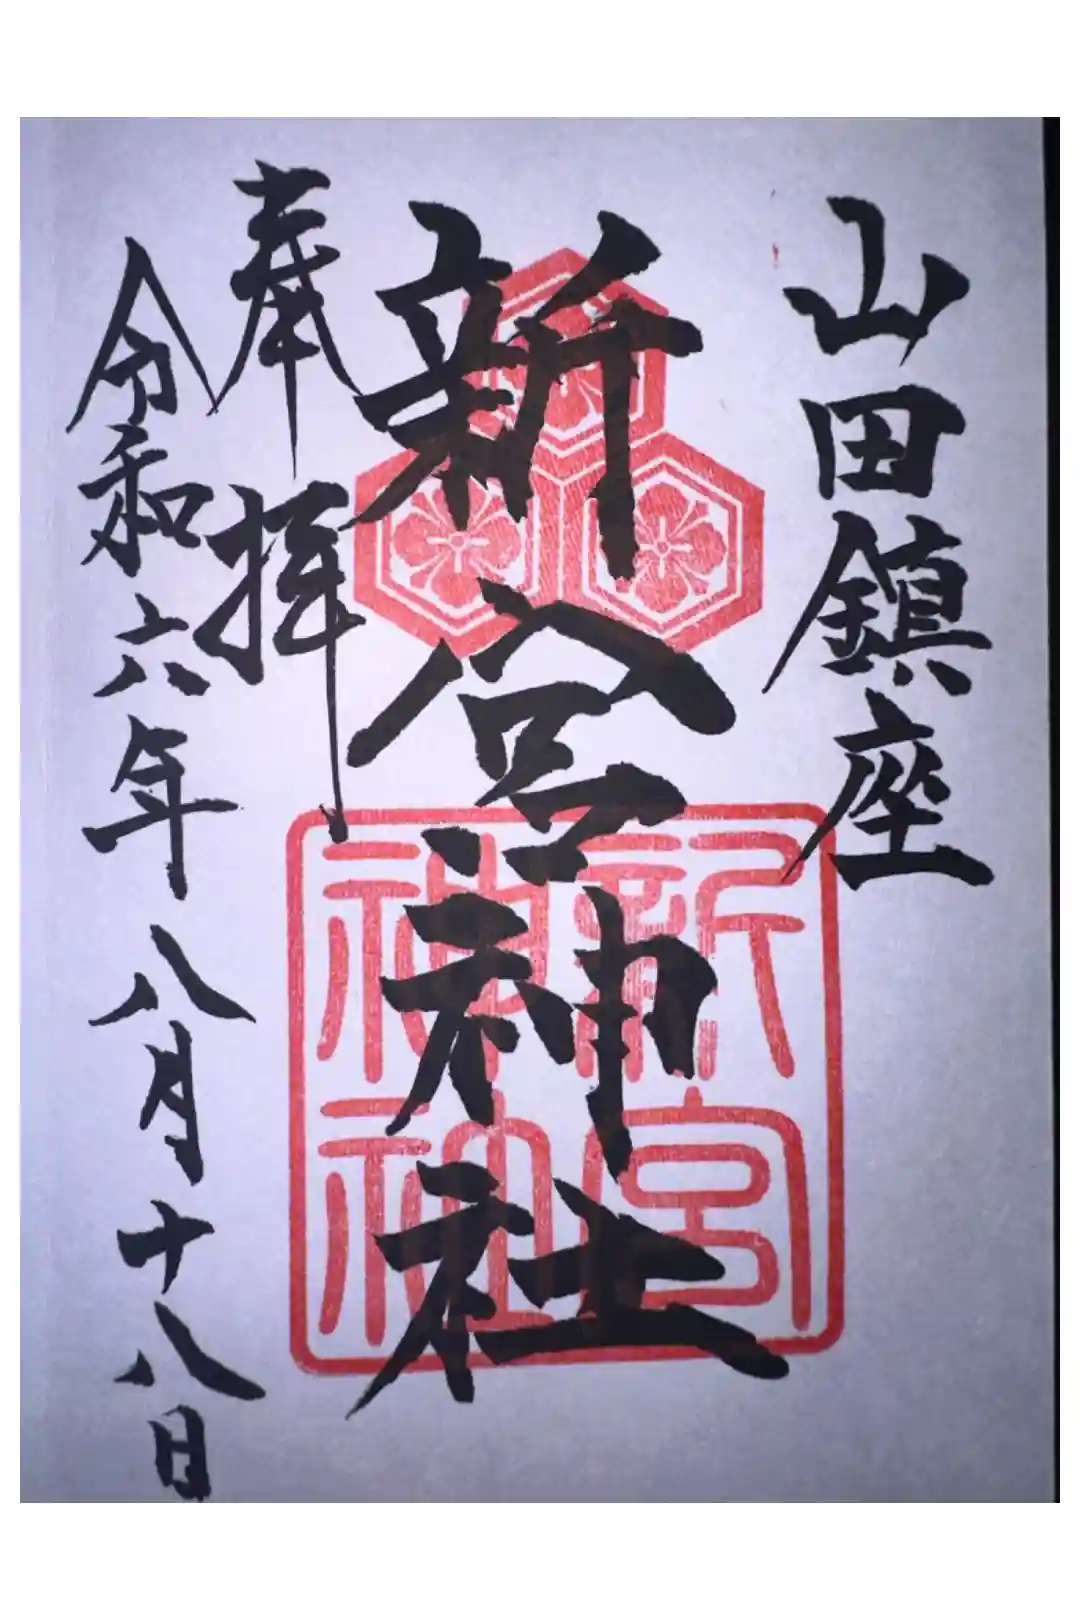 山田鎮座
新宮神社
奉拝
令和六年八月十八日
新宮神社